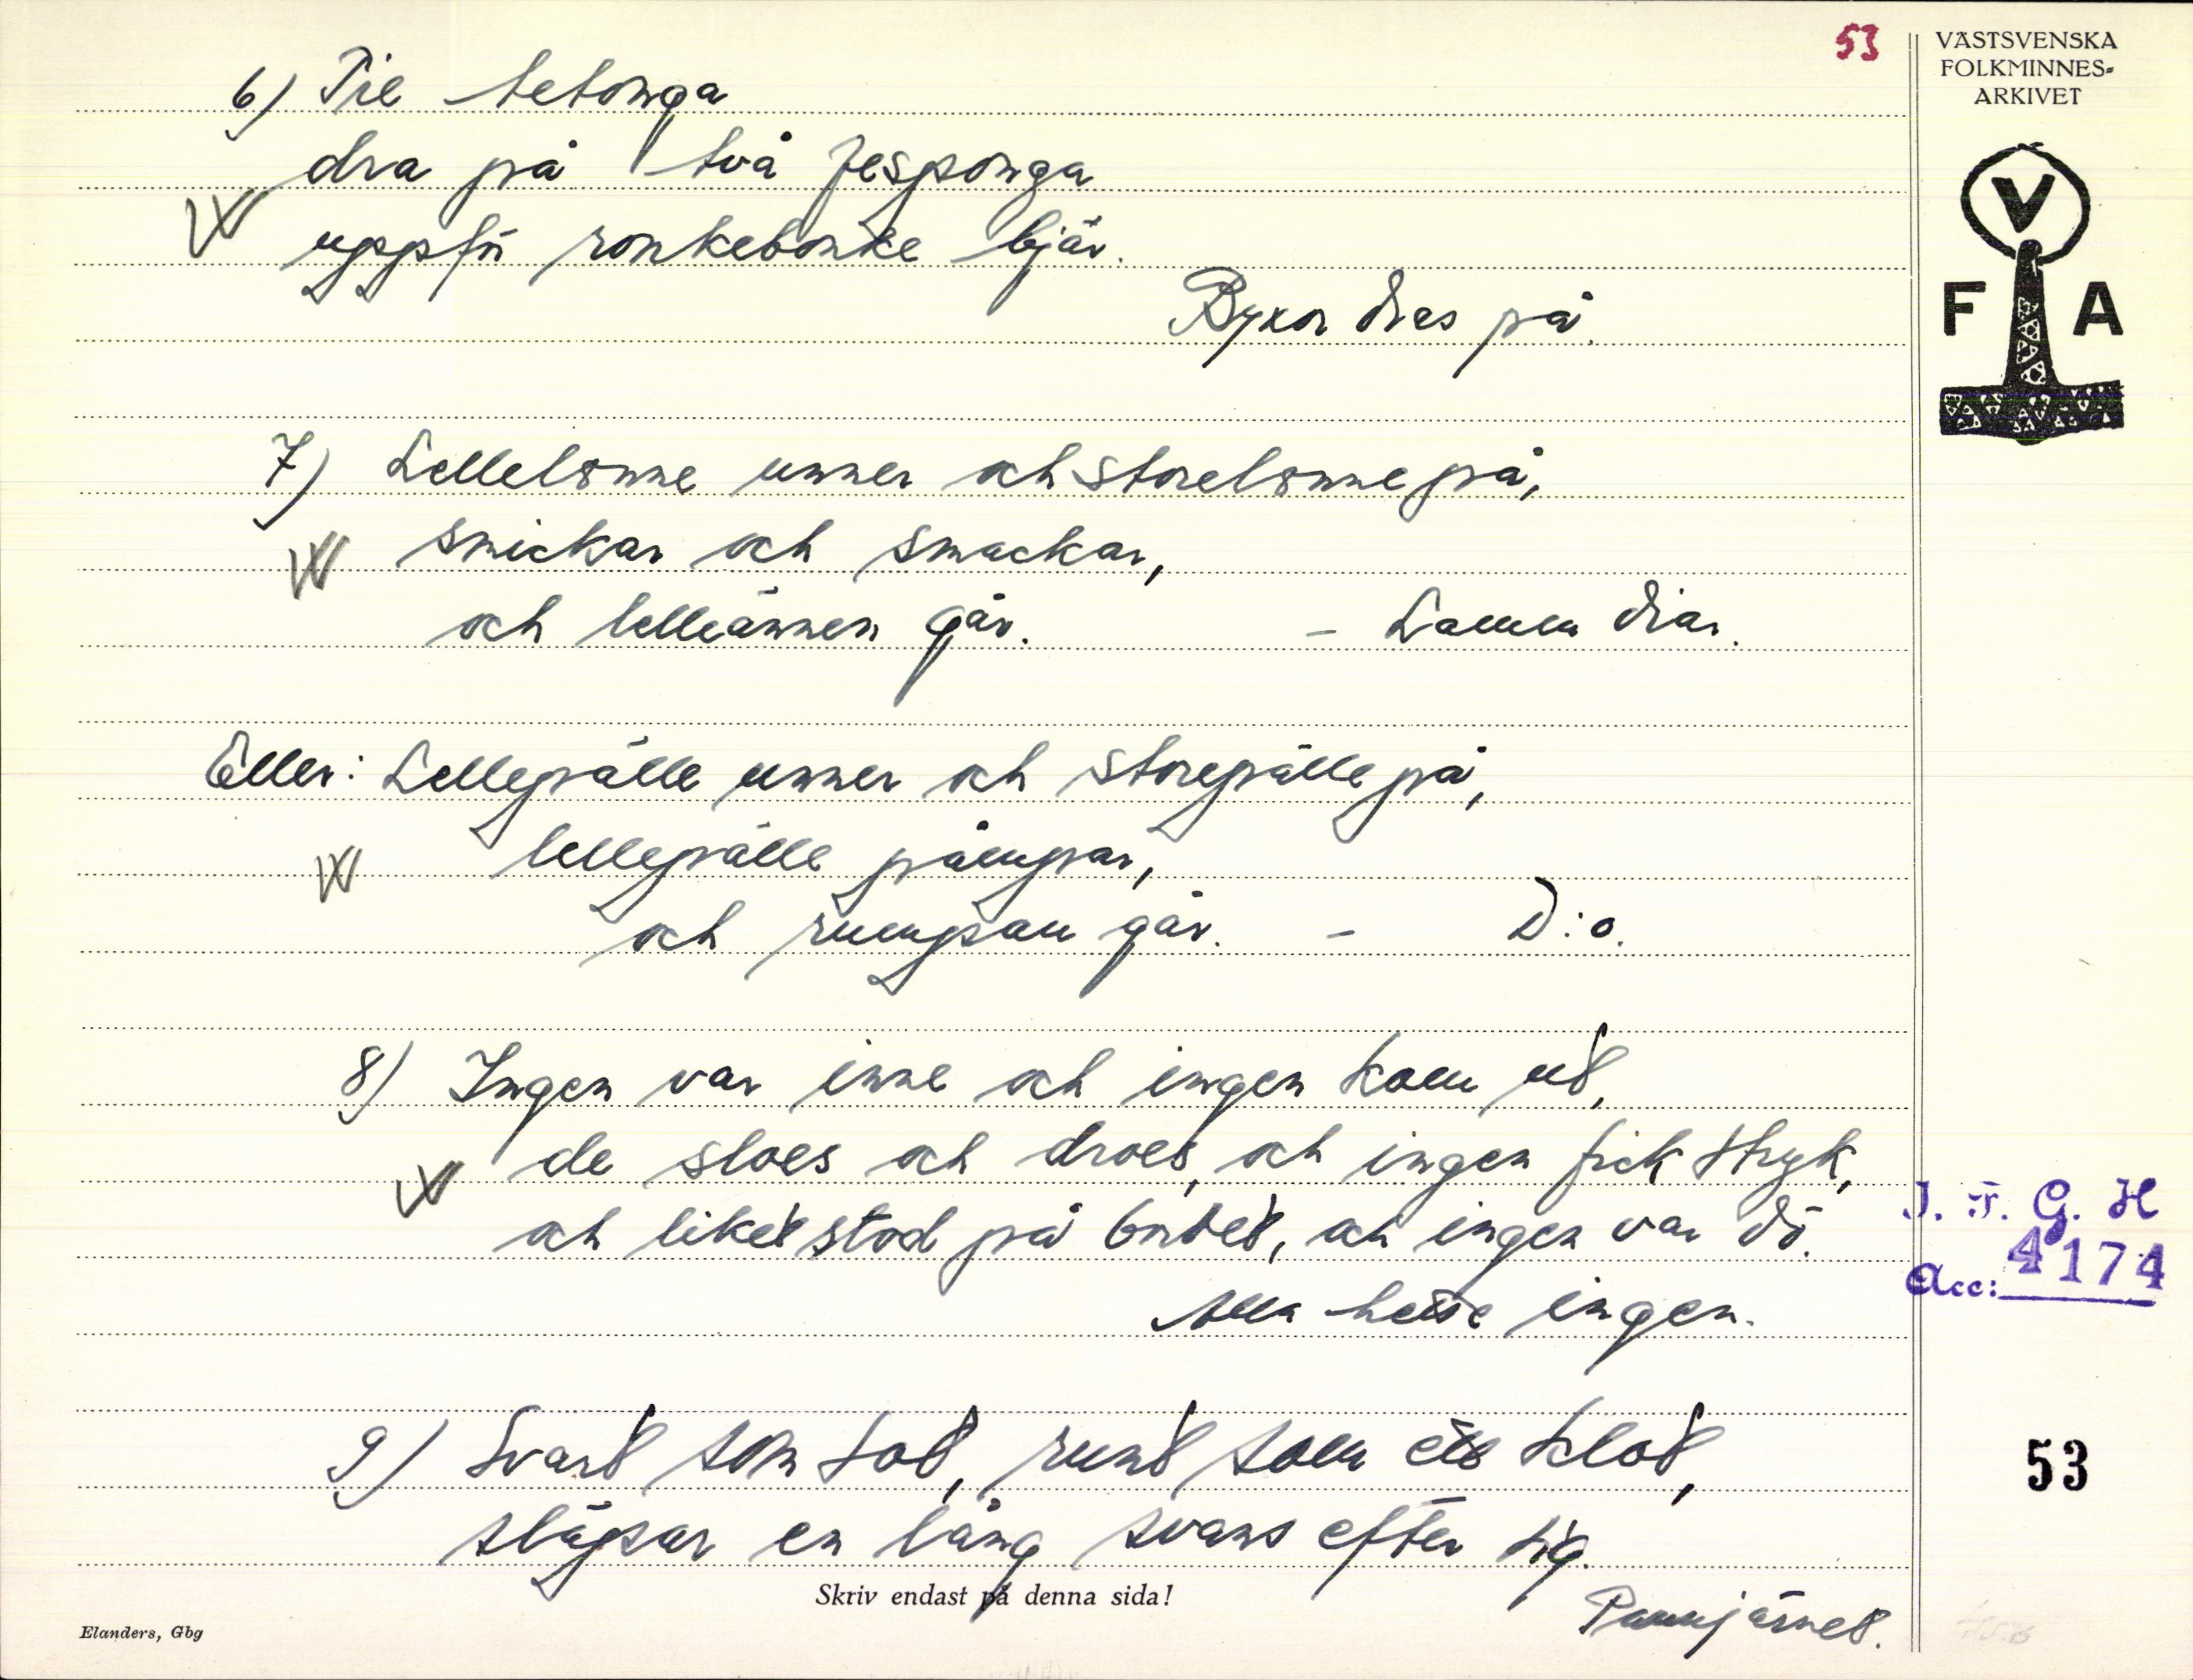 53
VÄSTSVENSKA
FOLKMINNES-
ARKIVET
V
F A
6) Tie tetonga
dra på två fesponga
uppför ronkebonke bjär.
Byxor dras på.
7) Lellelonne unner och storelonne på,
snickar och smackar,
och lelleännen går. - Lamm diar.
Eller: Lellepälle unner och storepälle på,
lellepälle pämpar,
och rumpan går. - D:o.
8) Ingen var inne och ingen kom ut,
de sloes och droes, och ingen fick stryk,
och liket stod på bordet, och ingen var dö.
Alla hette ingen.
9) Svart som sot, runt som ett klot,
släpar en lång svans efter sig.
Pannjärnet.
I. F. G. H
Acc: 4174
53
Skriv endast på denna sida!
Elanders, Gbg